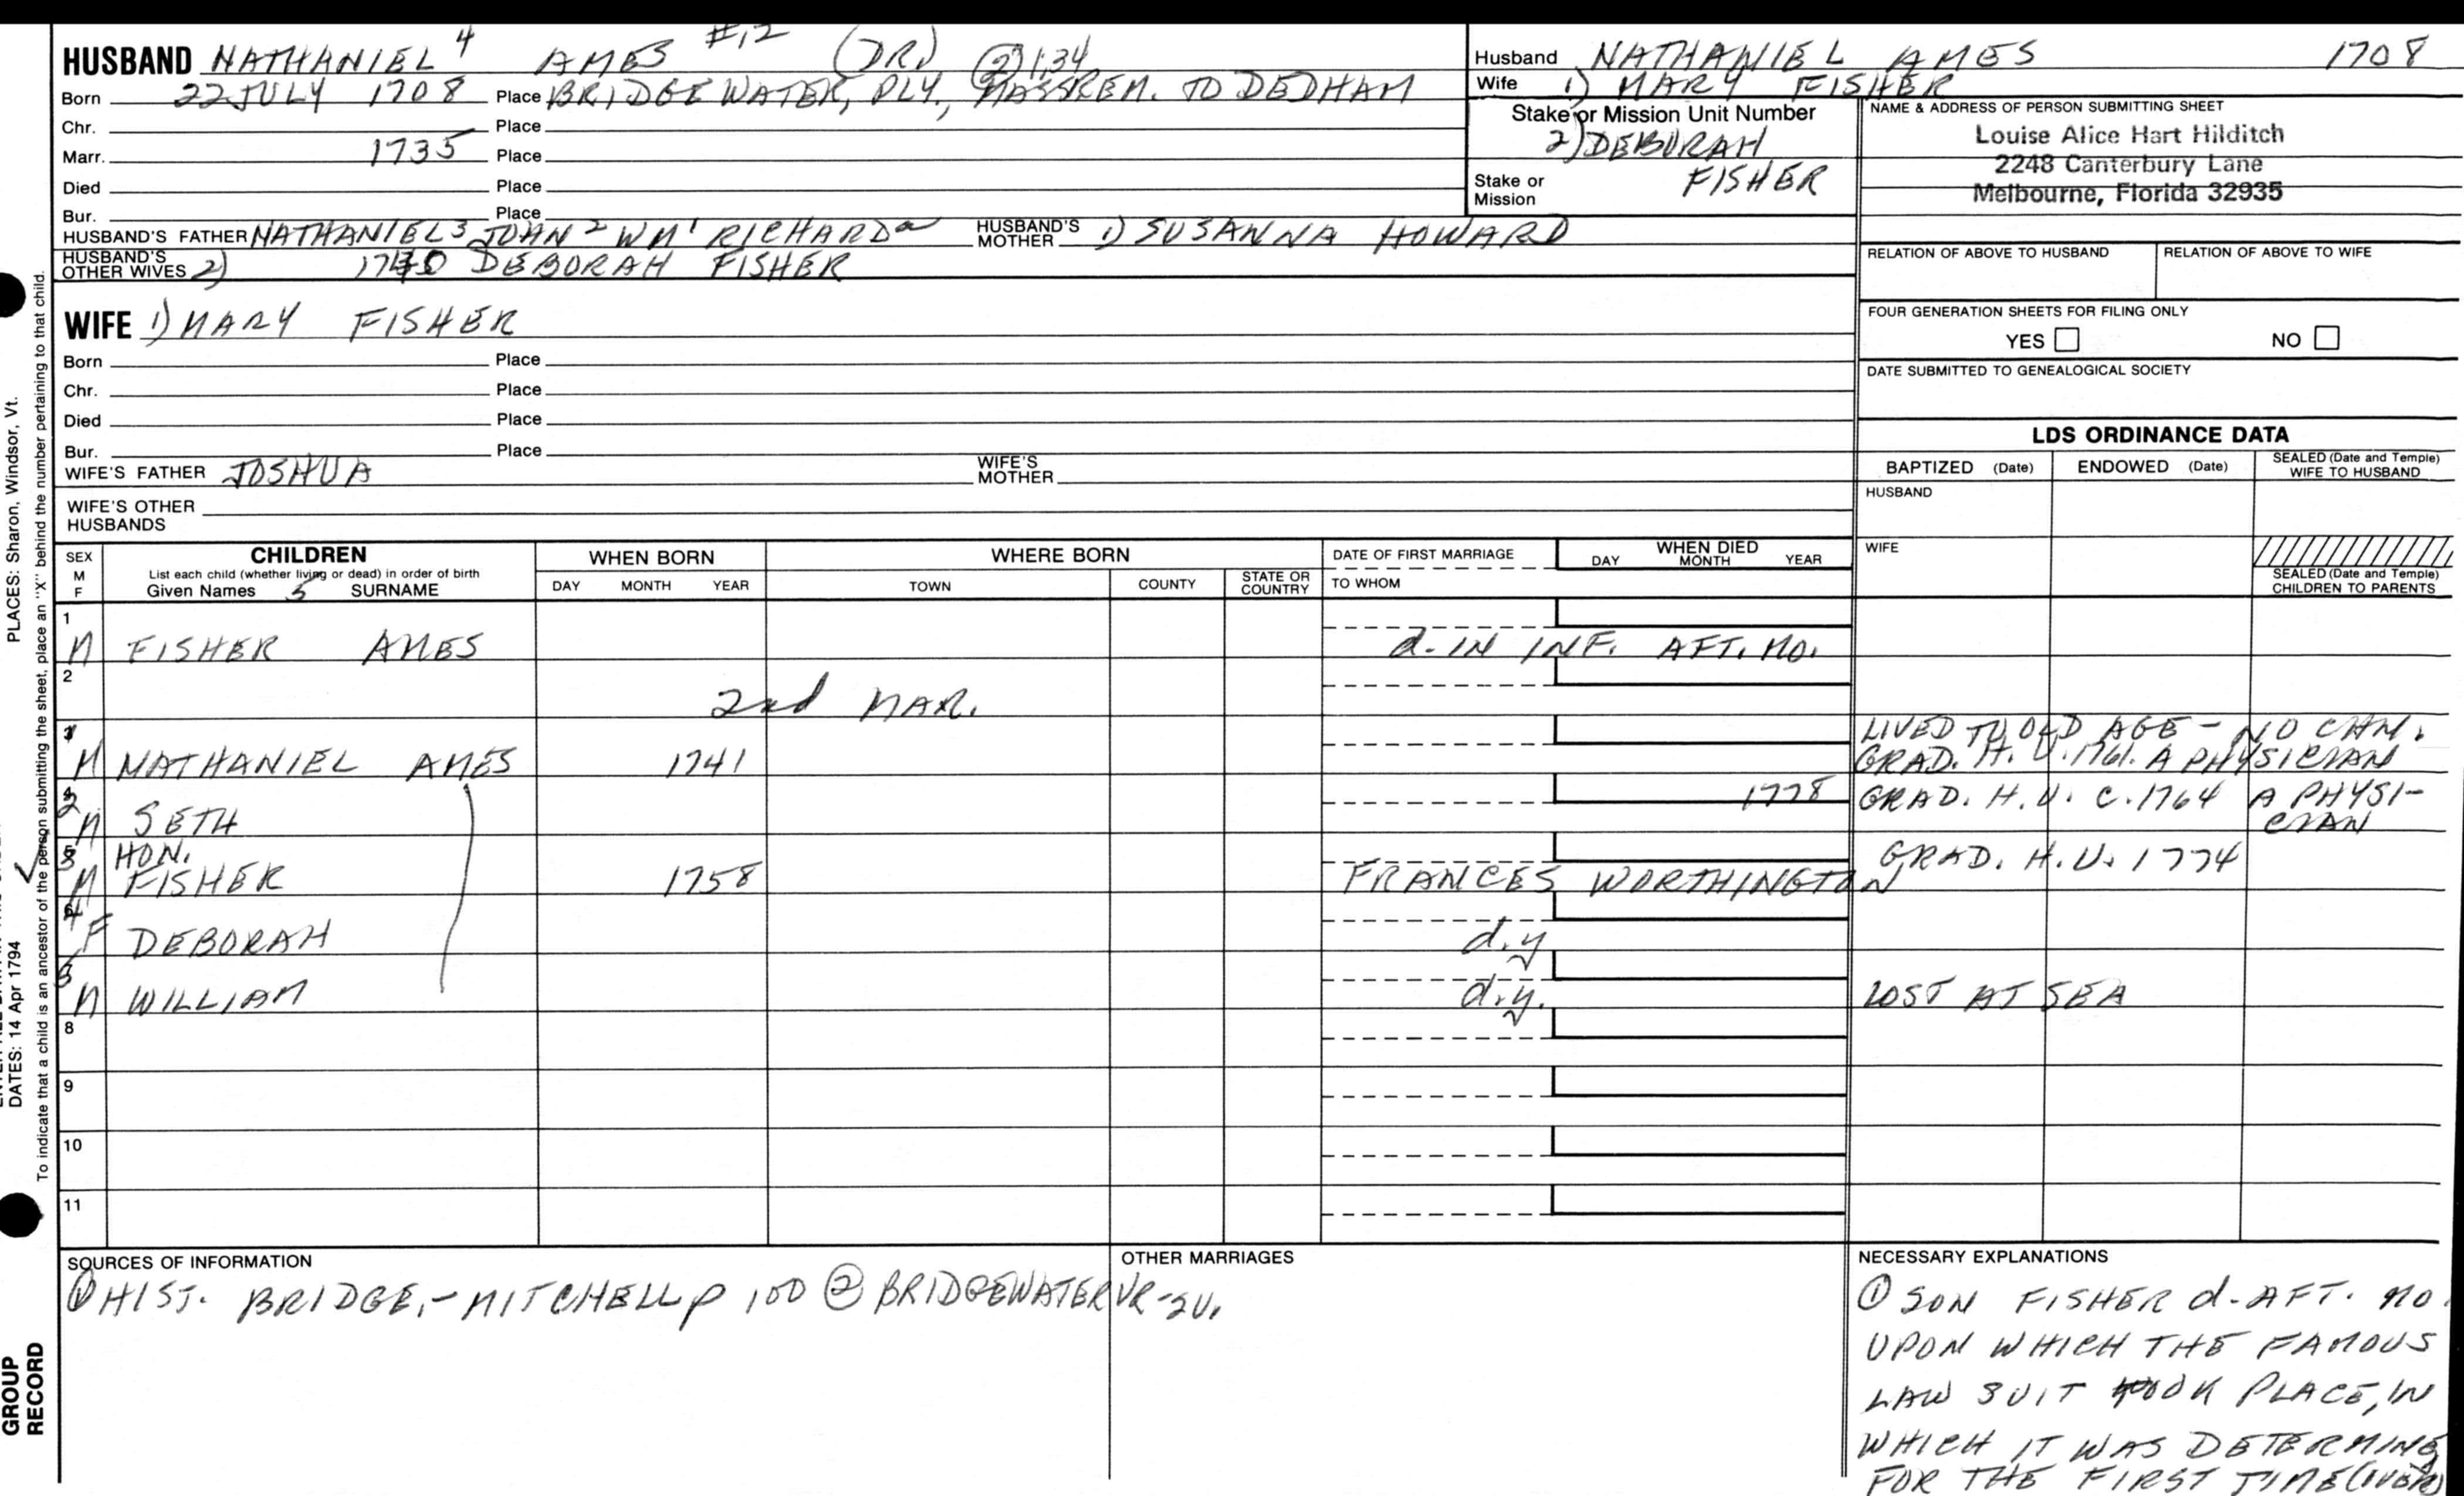 HUSBAND NATHANIEL 4 AMES #12 (DR) (2) 1:34
Born 22 JULY 1708 Place BRIDGEWATER, PLY., MASS REM. TO DEDHAM
Chr. Place
Marr. 1735 Place
Died Place
Bur. Place
HUSBAND'S FATHER NATHANIEL 3 JOHN 2 WM 1 RICHARD a HUSBAND'S MOTHER 1) SUSANNA HOWARD
HUSBAND'S OTHER WIVES 2) 1740 DEBORAH FISHER
Husband NATHANIEL AMES 1708
Wife 1) MARY FISHER
Stake or Mission Unit Number
2) DEBORAH
FISHER
Stake or
Mission
NAME & ADDRESS OF PERSON SUBMITTING SHEET
Louise Alice Hart Hilditch
2248 Canterbury Lane
Melbourne, Florida 32935
RELATION OF ABOVE TO HUSBAND RELATION OF ABOVE TO WIFE
FOUR GENERATION SHEETS FOR FILING ONLY
YES NO
DATE SUBMITTED TO GENEALOGICAL SOCIETY
WIFE 1) MARY FISHER
Born Place
Chr. Place
Died Place
Bur. Place
WIFE'S FATHER JOSHUA WIFE'S MOTHER
WIFE'S OTHER
HUSBANDS
LDS ORDINANCE DATA
BAPTIZED (Date) ENDOWED (Date) SEALED (Date and Temple) WIFE TO HUSBAND
HUSBAND
WIFE
SEALED (Date and Temple)
CHILDREN TO PARENTS
SEX M F CHILDREN WHEN BORN WHERE BORN DATE OF FIRST MARRIAGE WHEN DIED
List each child (whether living or dead) in order of birth
Given Names 5 SURNAME DAY MONTH YEAR TOWN COUNTY STATE OR COUNTRY TO WHOM DAY MONTH YEAR
1
M FISHER AMES d. IN INF. AFT. MO.
2
2nd MAR.
1 LIVED TO OLD AGE - NO CHN.
M NATHANIEL AMES 1741 GRAD. H. U. 1761. A PHYSICIAN
2 1778 GRAD. H. U. C. 1764 A PHYSI-
M SETH CIAN
3 HON. GRAD. H. U. 1774
M FISHER 1758 FRANCES WORTHINGTON
4
F DEBORAH d.y
5
M WILLIAM d.y. LOST AT SEA
8
9
10
11
SOURCES OF INFORMATION
(1) HIST. BRIDGE.-MITCHELL p 100 (2) BRIDGEWATER VR-2V.
OTHER MARRIAGES
NECESSARY EXPLANATIONS
(1) SON FISHER d. AFT. MO.
UPON WHICH THE FAMOUS
LAW SUIT TOOK PLACE, IN
WHICH IT WAS DETERMINE
FOR THE FIRST TIME (OVER)
PLACES: Sharon, Windsor, Vt.
DATES: 14 Apr 1794
To indicate that a child is an ancestor of the person submitting the sheet, place an "X" behind the number pertaining to that child.
GROUP
RECORD